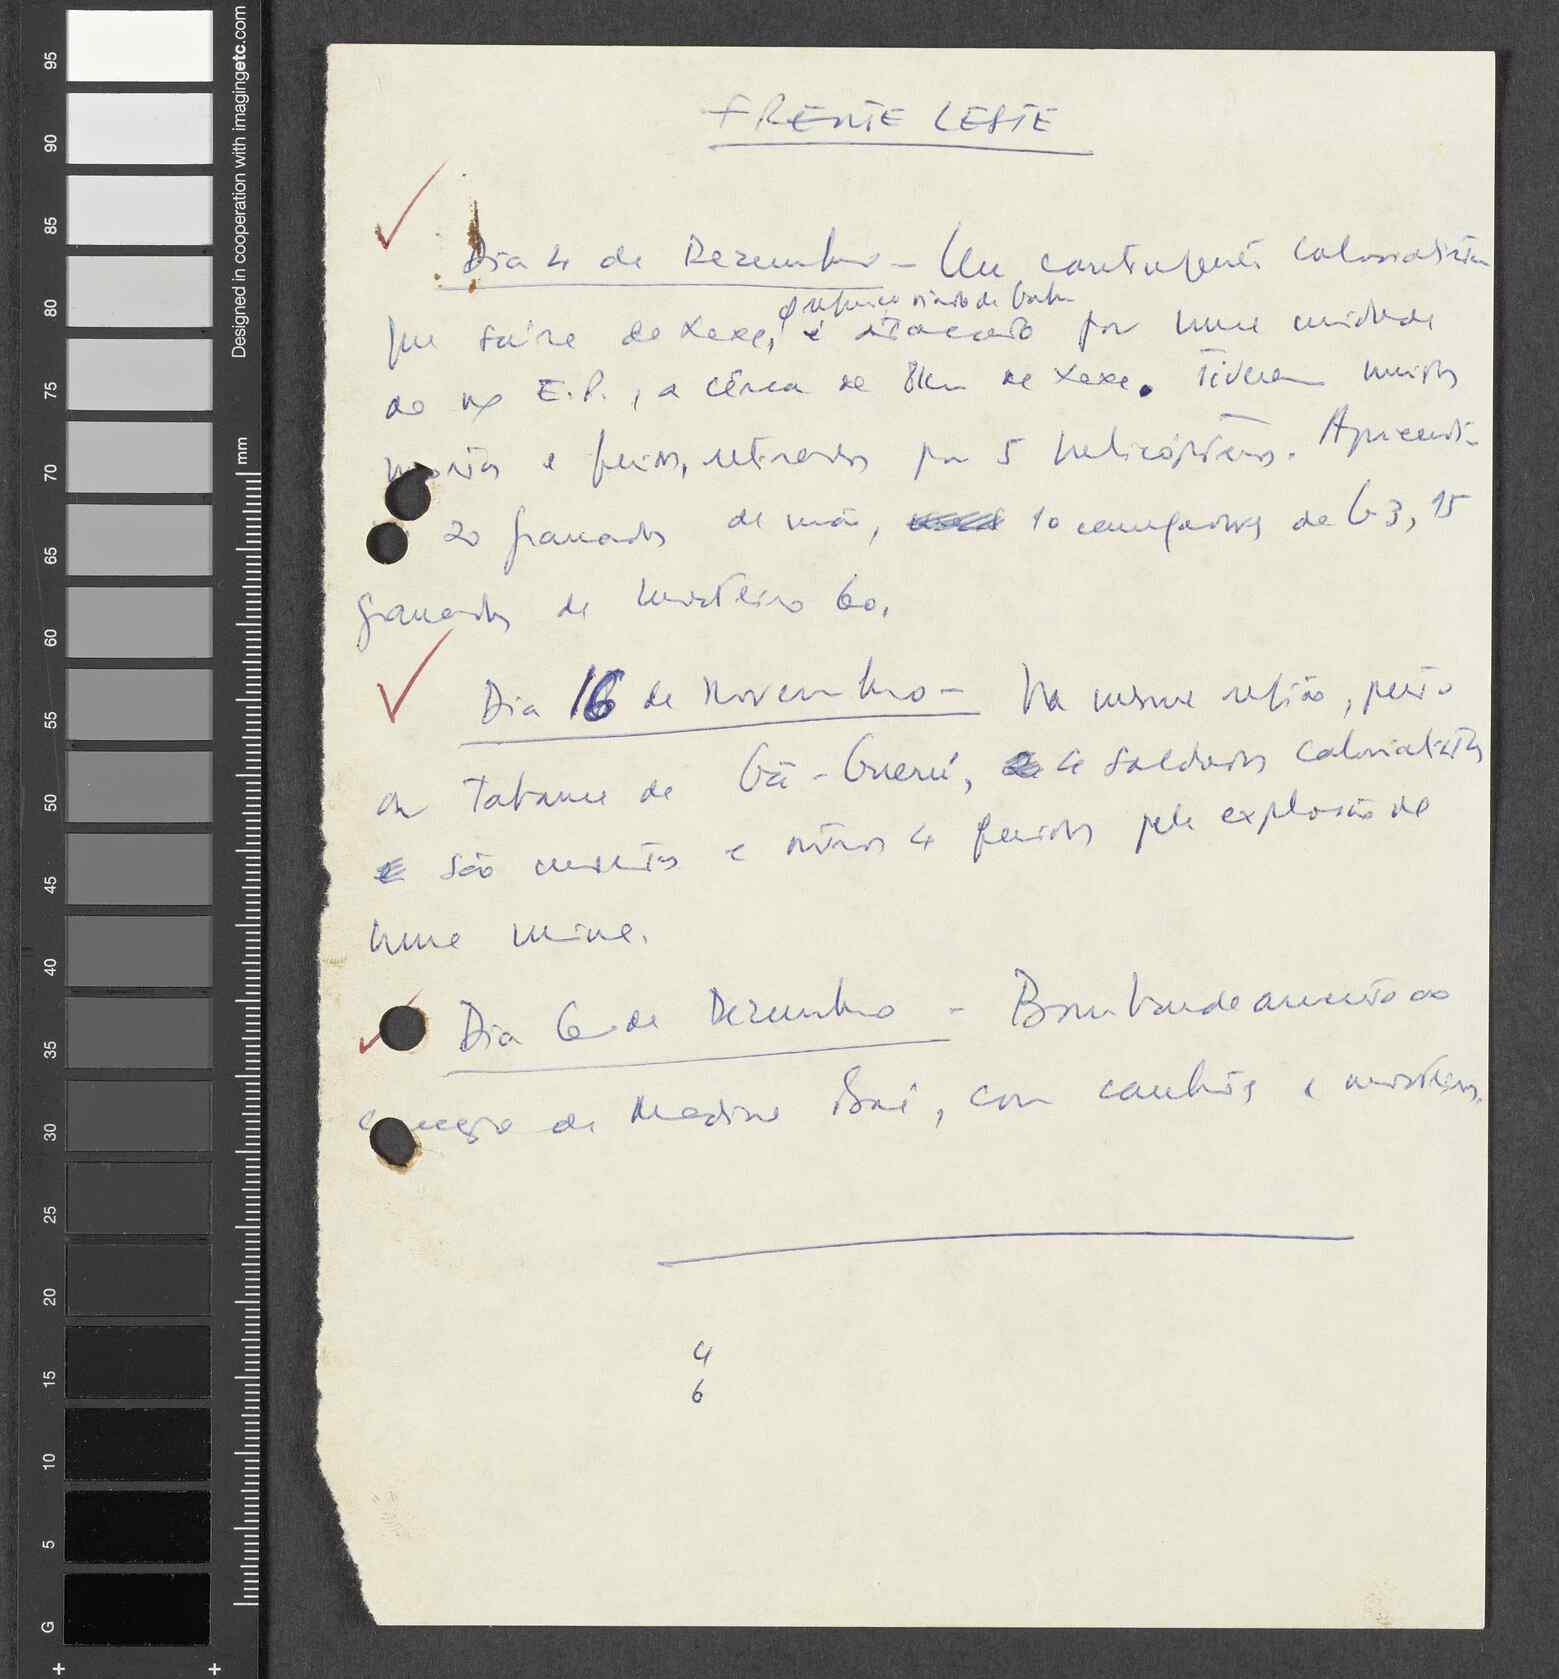 FRENTE LESTE
Dia 4 de Dezembro - Um contingente colonialista
que saíra de Xexe, é atacado por uma unidade
do n/ E.P., a cêrca de 8km de Xexe. Tiveram muitos
mortos e feridos, retirados por 5 helicópteros.
20 granadas de mão, 10 carregadores de G3, 15
granadas de morteiro 60.
Dia 16 de Novembro - Na mesma região, perto
da Tabanca de Gã-Guerú, 4 soldados colonialistas
são mortos e outros 4 feridos pela explosão de
uma mina.
Dia 6 de Dezembro - Bombardeamento do
de Madina Boé, com canhões e morteiros.
4
6
95
90
85
80
75
70
65
60
55
50
45
40
35
30
25
20
15
10
5
G
mm
Designed in cooperation with imagingetc.com